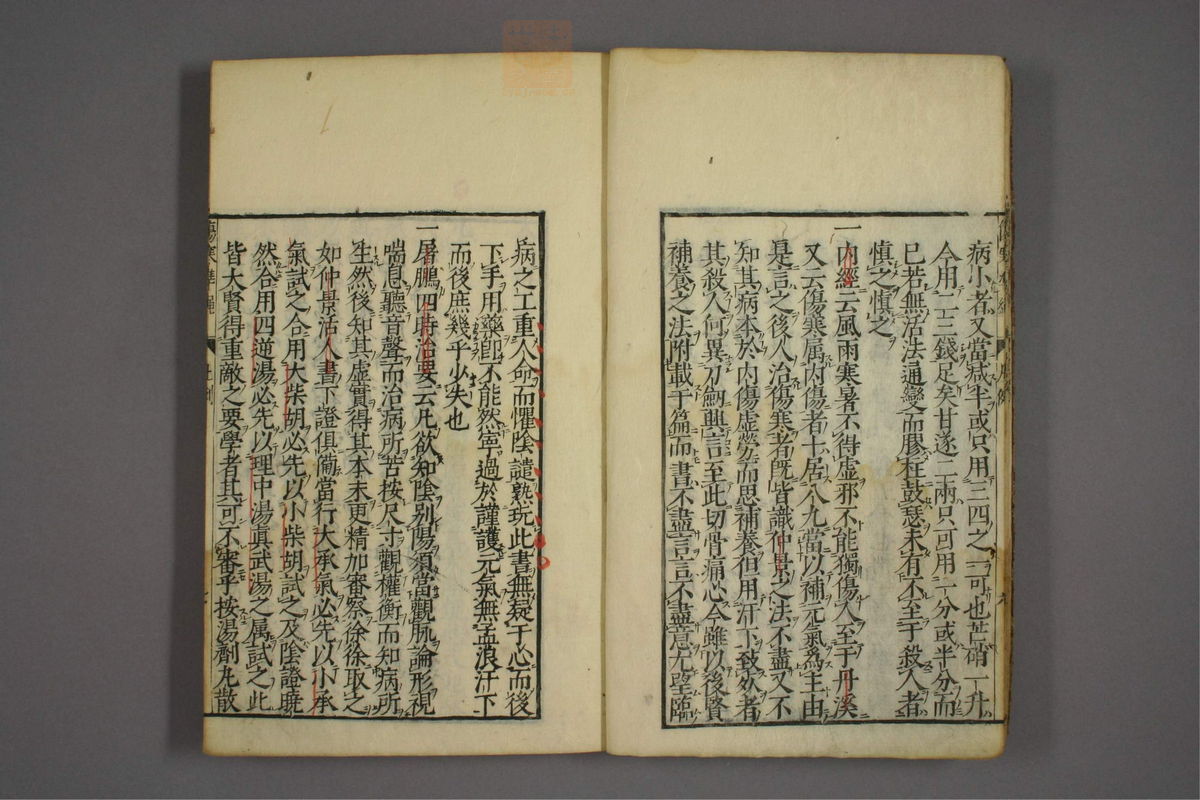 病小者又當减半或只用三四之一可也芒硝一升
今用二三錢足矣甘遂二兩只可用一分或半分而
已若無活法通變而膠柱鼓瑟未有不至于殺人者
慎之慎之
一內經云風雨寒暑不得虛邪不能獨傷人至于丹溪
又云傷寒属内傷者十居八九當以補元氣爲主由
是言之後人治傷寒者既皆識仲景之法不盡又不
知其病本於内傷虛勞而思補養但用汗下致死者
其殺人何異刀劒興言至此切骨痛心今雖以後賢
補養之法附載于篇而書不盡言言不盡意尤望臨
病之工重人命而懼陰譴熟玩此書無疑于心而後
下手用藥卽不能然寧過於謹護元氣無孟浪汗下
而後庶幾乎少失也
一屠鵬四時治要云凡欲知陰别陽須當觀脉論形視
喘息聽音聲而治病所苦按尺寸觀權衡而知病所
生然後知其虛實得其本末更精加審察徐徐取之
如仲景活人書下證俱俻當行大承氣必先以小承
氣試之合用大柴胡必先以小柴胡試之及陰證曉
然合用四逆湯必先以理中湯眞武湯之属試之此
皆大賢得重敵之要學者其可不審乎按湯劑丸散